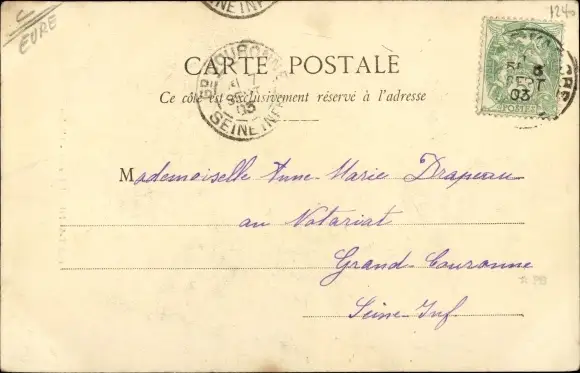 EURE
1240
SEINE INF
CARTE POSTALE
Ce côté est exclusivement réservé à l'adresse
GD COURONNE
SEPT
03
SEINE INFRE
5
SEPT
03
POSTES
Mademoiselle Anne-Marie Drapeau
au Notariat
Grand-Couronne
Seine-Inf